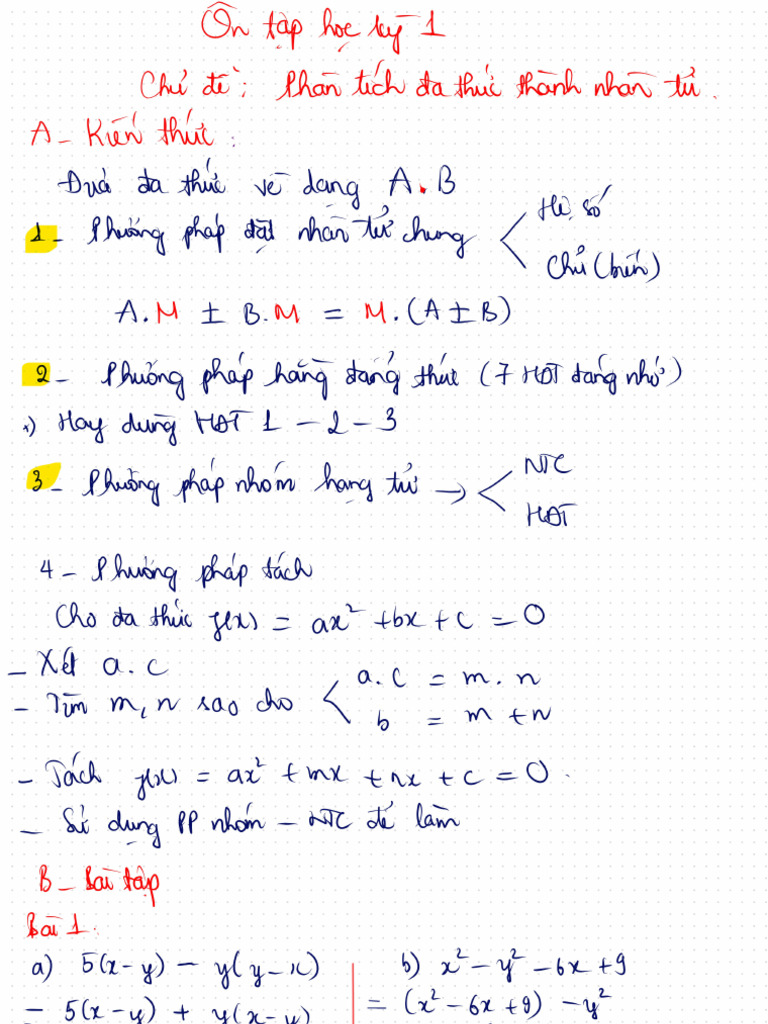 Ôn tập học kỳ 1
Chủ đề: Phân tích đa thức thành nhân tử.
A - Kiến thức:
Đưa đa thức về dạng A.B
1 - Phương pháp đặt nhân tử chung < Hệ số
Chữ (biến)
A.M ± B.M = M.(A ± B)
2 - Phương pháp hằng đẳng thức (7 HĐT đáng nhớ)
*) Hay dùng HĐT 1 - 2 - 3
3 - Phương pháp nhóm hạng tử → < NTC
HĐT
4 - Phương pháp tách
Cho đa thức f(x) = ax² + bx + c = 0
- Xét a.c
- Tìm m, n sao cho < a.c = m.n
b = m + n
- Tách f(x) = ax² + mx + nx + c = 0.
- Sử dụng PP nhóm - NTC để làm
B - Bài tập
Bài 1:
a) 5(x-y) - y(y-x)
= 5(x-y) + y(x-y)
b) x² - y² - 6x + 9
= (x² - 6x + 9) - y²